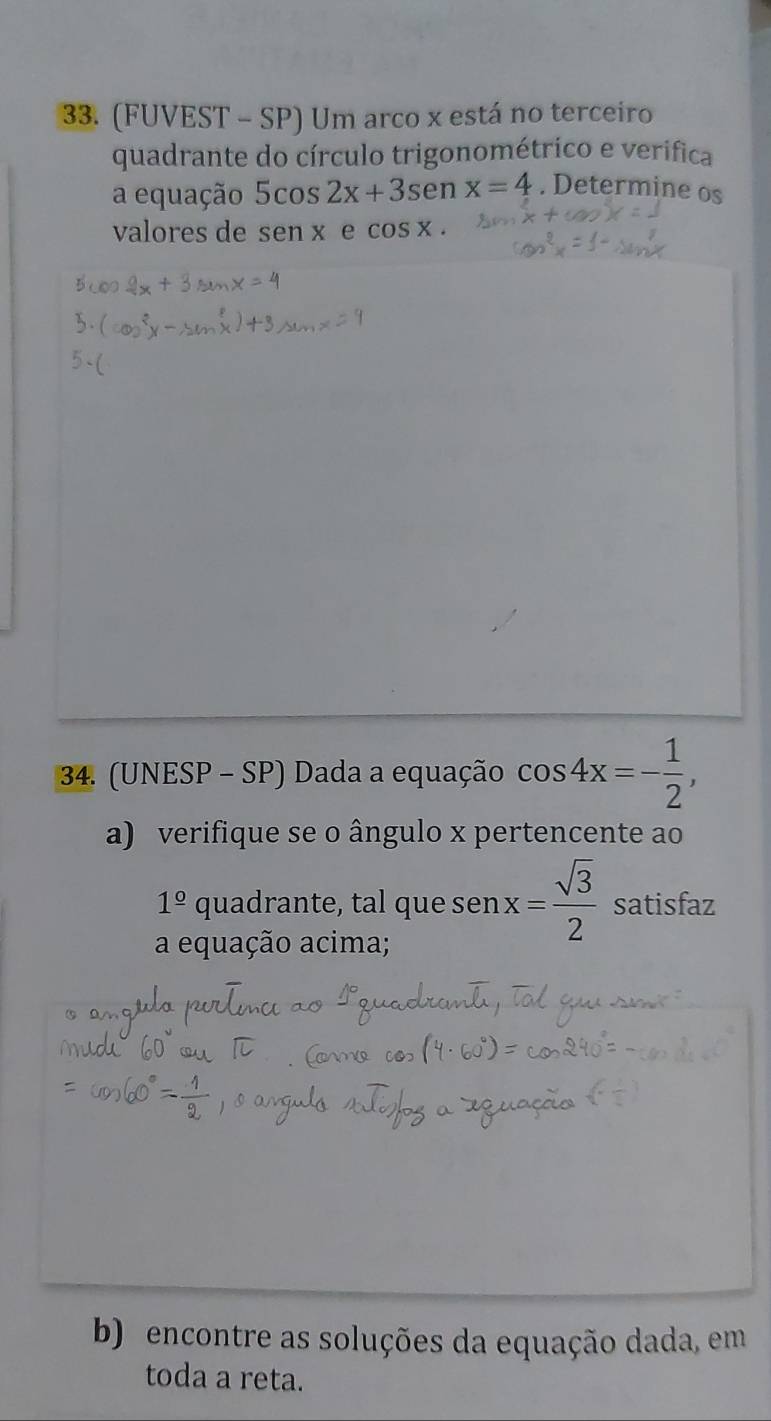 33. (FUVEST – SP) Um arco x está no terceiro
quadrante do círculo trigonométrico e verifica
a equação 5cos 2x + 3sen x = 4 . Determine os
valores de sen x e cos x .
sen²x + cos²x = 1
cos²x = 1 - sen²x
5 cos 2x + 3 senx = 4
5·(cos²x - sen²x) + 3 senx = 4
5·(
34. (UNESP – SP) Dada a equação cos 4x = -1/2 ,
a) verifique se o ângulo x pertencente ao
1º quadrante, tal que sen x = √3/2 satisfaz
a equação acima;
o angula pertence ao 1º quadrante, tal que
mede 60° ou π . Como cos (4·60°) = cos 240° = -
= cos60° = 1/2 , o angulo satisfaz a equação
b) encontre as soluções da equação dada, em
toda a reta.